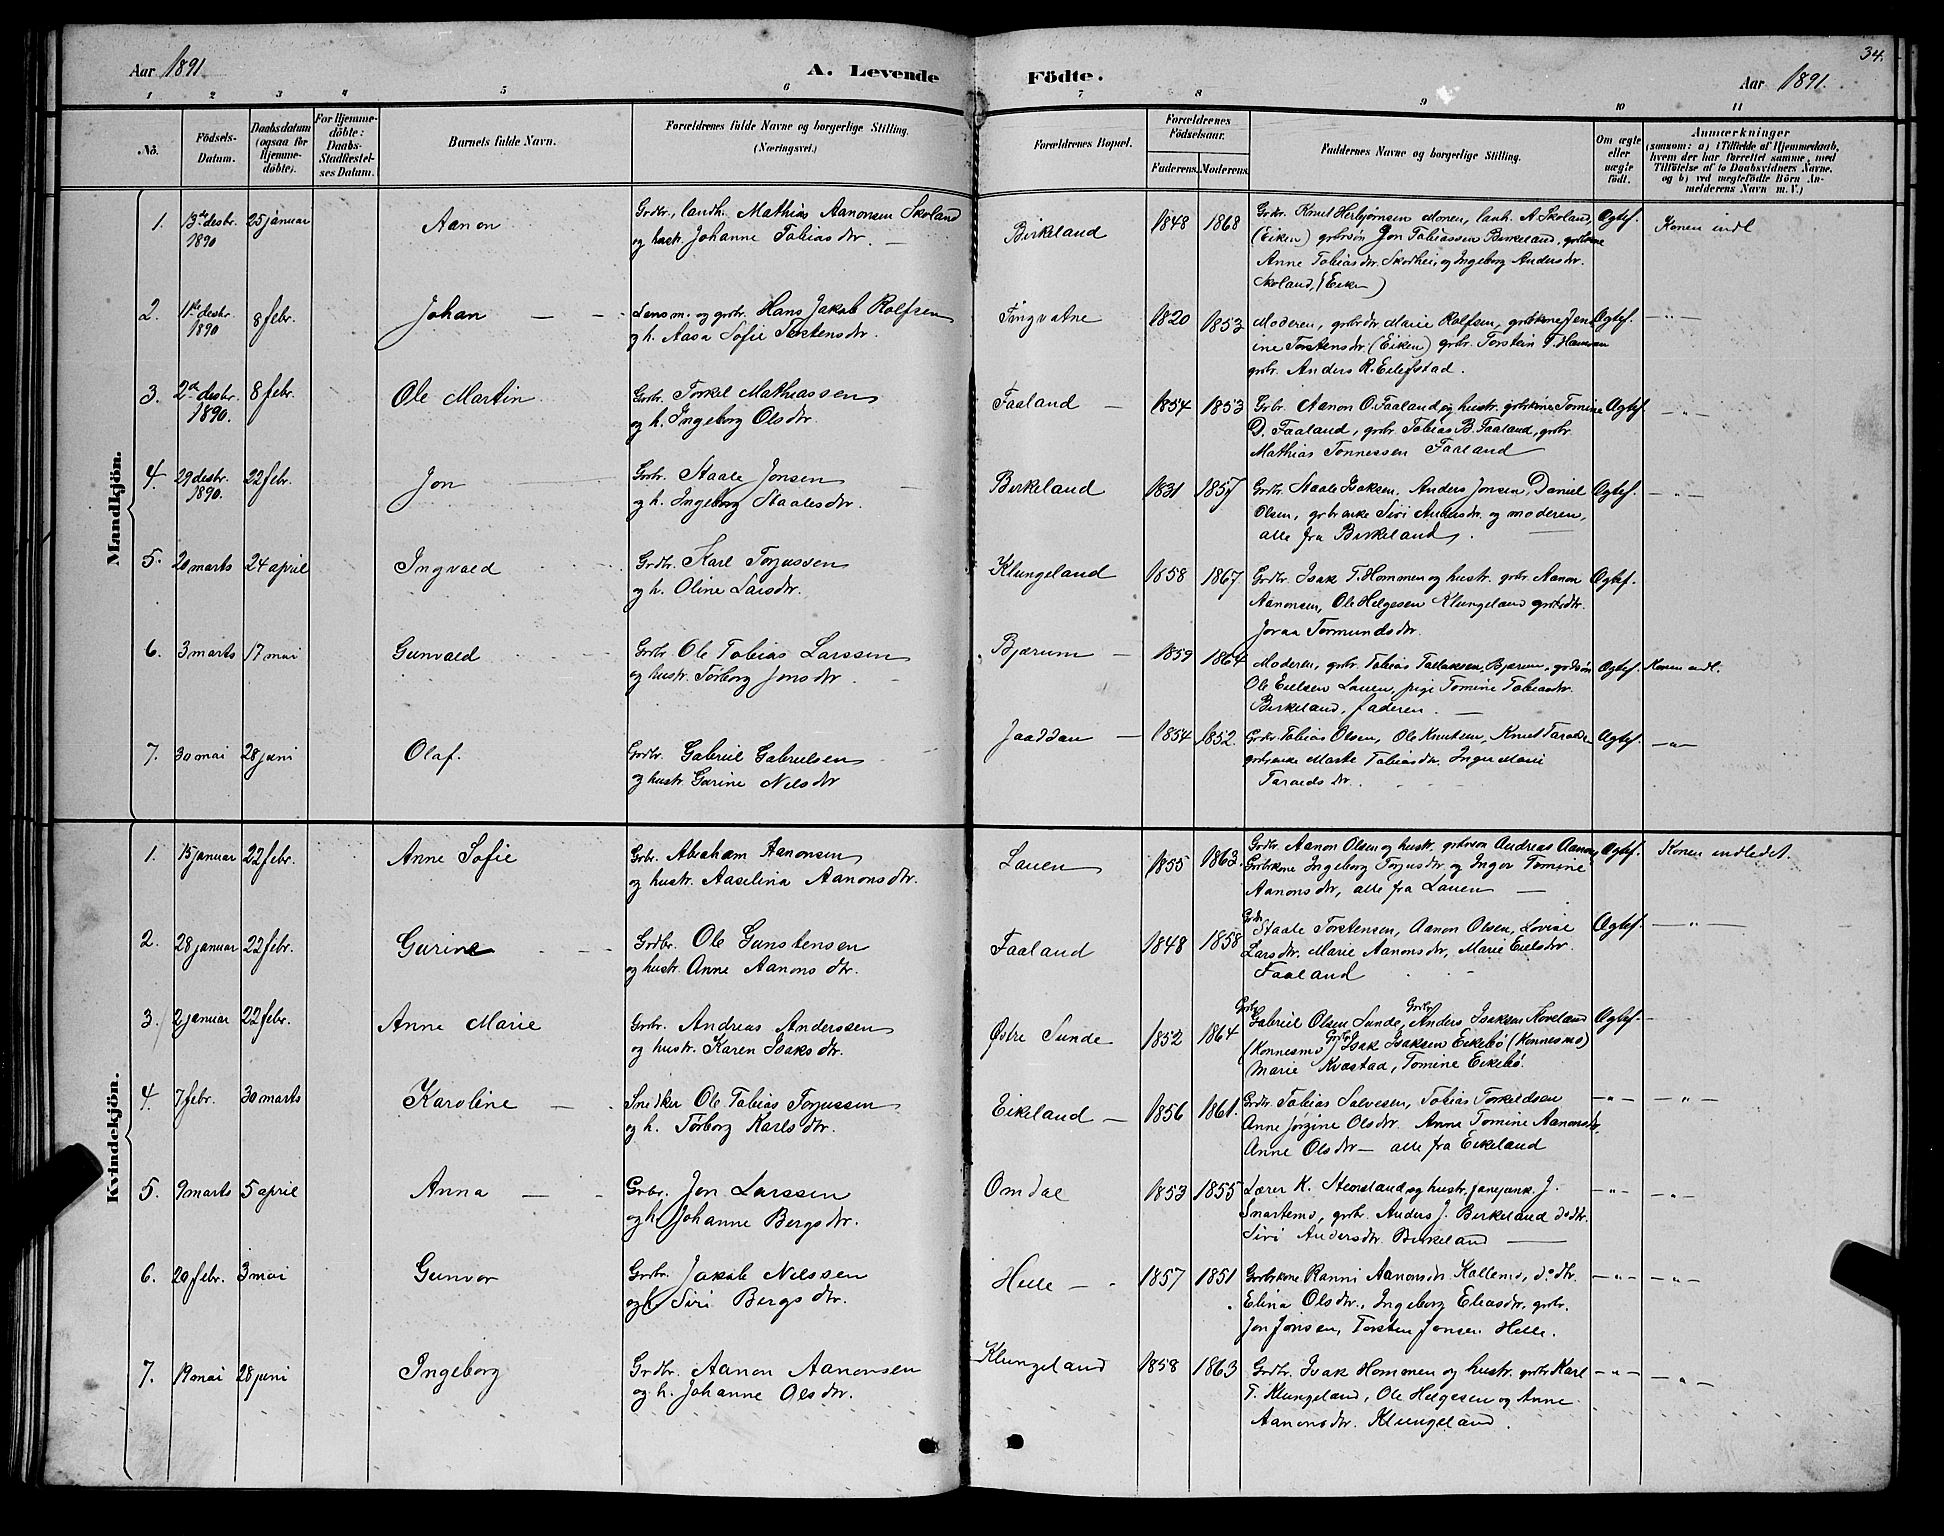 34.
Aar 1891 A. Levende Födte. Aar 1891.
1 2 3 4 5 6 7 8 9 10 11
No. Födsels-Datum. Daabsdatum (ogsaa for Hjemme-döbte). For Hjemme-döbte: Daabs-Stadfæstel-ses Datum. Barnets fulde Navn. Forældrenes fulde Navne og borgerlige Stilling. (Næringsvei.) Forældrenes Bopæl. Forældrenes Födselsaar. Faderens. Moderens. Faddernes Navne og borgerlige Stilling. Om ægte eller uægte födt. Anmærkninger (saasom: a) i Tilfælde af Hjemmedaab, hvem der har forrettet samme, med Tilföielse af to Daabsvidners Navne, og b) ved uægtefödte Börn An-melderens Navn m. V.)
Mandkjön.
1. 13de desbr. 1890 25 januar Aanon Grdbr., landh. Mathias Aanonsen Skoland
og hustr. Johanne Tobiasdtr. Birkeland 1848 1868 Grdbr. Knut Herbjørnsen Monen, lanh. A. Skoland
(Eiken) grbrsøn Jon Tobiassen Birkeland, grbrkone
Anne Tobiasdtr. Skothei, og Ingeborg Andersdtr.
Skoland, (Eiken) Ægtef. Konen indl
2. 11te desbr. 1890 8 febr. Johan Lensm. og grbr. Hans Jakob Rolfsen
og h. Aasa Sofie Torstensdtr. Tingvatne 1820 1853 Moderen, grbrdtr Marie Rolfsen, grbrkone Jen-
ine Torstensdtr. (Eiken) grbr. Torstein T. Hommen
grbr. Anders R. Eilefstad. Ægtef. — " —
3. 2den desbr. 1890. 8 febr. Ole Martin Grbr. Torkel Mathiassen
og h. Ingeborg Olsdtr. Faaland 1854 1853 Grbr. Aanon O. Faaland og hustr. grbrkone Tomine
D. Faaland, grbr. Tobias B. Faaland, grbr.
Mathias Tønnessen Faaland Ægtef. — " —
4. 29 desbr. 1890. 22 febr. Jon Grbr. Staale Jonsen
og h. Ingeborg Staalesdtr. Birkeland 1831 1857 Grdbr. Staale Isaksen, Anders Jonsen, Daniel
Olsen, grbr enke Siri Andersdtr. og moderen,
alle fra Birkeland. Ægtef. — " —
5. 20 marts 24 april Ingvald Grdbr. Karl Torjussen
og h. Oline Larsdtr. Klungeland 1858 1867 Grdbr. Isak T. Hommen og hustr. grbr. Aanon
Aanonsen, Ole Helgesen Klungeland grbrdtr.
Joraa Tormundsdtr. Ægtef.
6. 3 marts 17 mai Gunvald Grdbr. Ole Tobias Larssen
og hustr. Torborg Jonsdtr. Bjærum 1859 1864 Moderen, grbr. Tobias Tarlaksen, Bjærum, grdbrsøn
Ole Eielsen Lauen, pige Tomine Tobiasdtr.
Birkeland, faderen. Ægtef. Konen indl.
7. 30 mai 28 juni Olaf. Grdbr. Gabriel Gabrielsen
og hustr. Gurine Nilsdtr Jaaddan 1854 1852. Grdbr. Tobias Olsen, Ole Knutsen, Knut
grbrenke Marte Tobiasdtr. Inger Marie
Taraldsdtr. Ægtef. — " —
Kvindekjön.
1. 15 januar 22 febr. Anne Sofie Grbr. Abraham Aanonsen
og hustr. Aaselina Aanonsdtr. Lauen 1855 1863. Grdbr. Aanon Olsen og hustr. grbrsøn Andreas Aanons.
Grdbrkone Ingeborg Torjusdtr. og Inger Tomine
Aanonsdtr, alle fra Lauen Ægtef. Konen indledet.
2. 28 januar 22 febr. Gurine Grdbr. Ole Gunstensen
og hustr. Anne Aanonsdtr. Faaland 1848 1858 Grdbr Staale Torstensen, Aanon Olsen, Lovise
Larsdtr. Marie Aanonsdtr, Marie Eielsdtr.
Faaland Ægtef. — " —
3. 2 januar 22 febr. Anne Marie Grbr. Andreas Anderssen
og hustr. Karen Isaksdtr. Østre Sunde 1852 1864 Grbr. Gabriel Olsen Sunde, Grbr. Anders Isaksen Hoveland
(Konnesmo) Grbr. Isak Isaksen Eikebø (Konnesmo)
Marie Kvastad, Tomine Eikebø. Ægtef. —
4. 7 febr. 30 marts Karoline Snedker Ole Tobias Torjussen
og h. Torborg Karlsdtr. Eikeland 1856 1861. Grdbr. Tobias Salvesen, Tobias Torkeldsen
Anne Jørgine Olsdtr. Anne Tomine Aanonsdtr.
Anne Olsdtr — alle fra Eikeland — " — — " —
5. 9 marts 5 april Anna Grbr. Jon Larssen
og h. Johanne Bergsdtr. Omdal 1853 1855 Lærer K. Storsland og hustr. J.
Snartemo, grbr. Anders J. Birkeland do dtr.
Siri Andersdtr. Birkeland — " — — " —
6. 20 febr. 3 mai Gunvor Grbr. Jakob Nilssen
og h. Siri Bergsdtr. Helle 1857 1851 Grdbrkone Ranni Aanonsdtr. Kallemo, do dtr.
Elina Olsdtr., Ingeborg Eliasdtr, grbr.
Jon Jonsen, Torsten Jonsen Helle. — " — — " —
7. 19 mai 28 juni Ingeborg Grdbr. Aanon Aanonsen
og h. Johanne Olsdtr. Klungeland 1858 1863 Grdbr. Isak Hommen og hustr. grbr Karl
T. Klungeland, Ole Helgesen og Anne
Aanonsdtr. Klungeland. — " — — " —